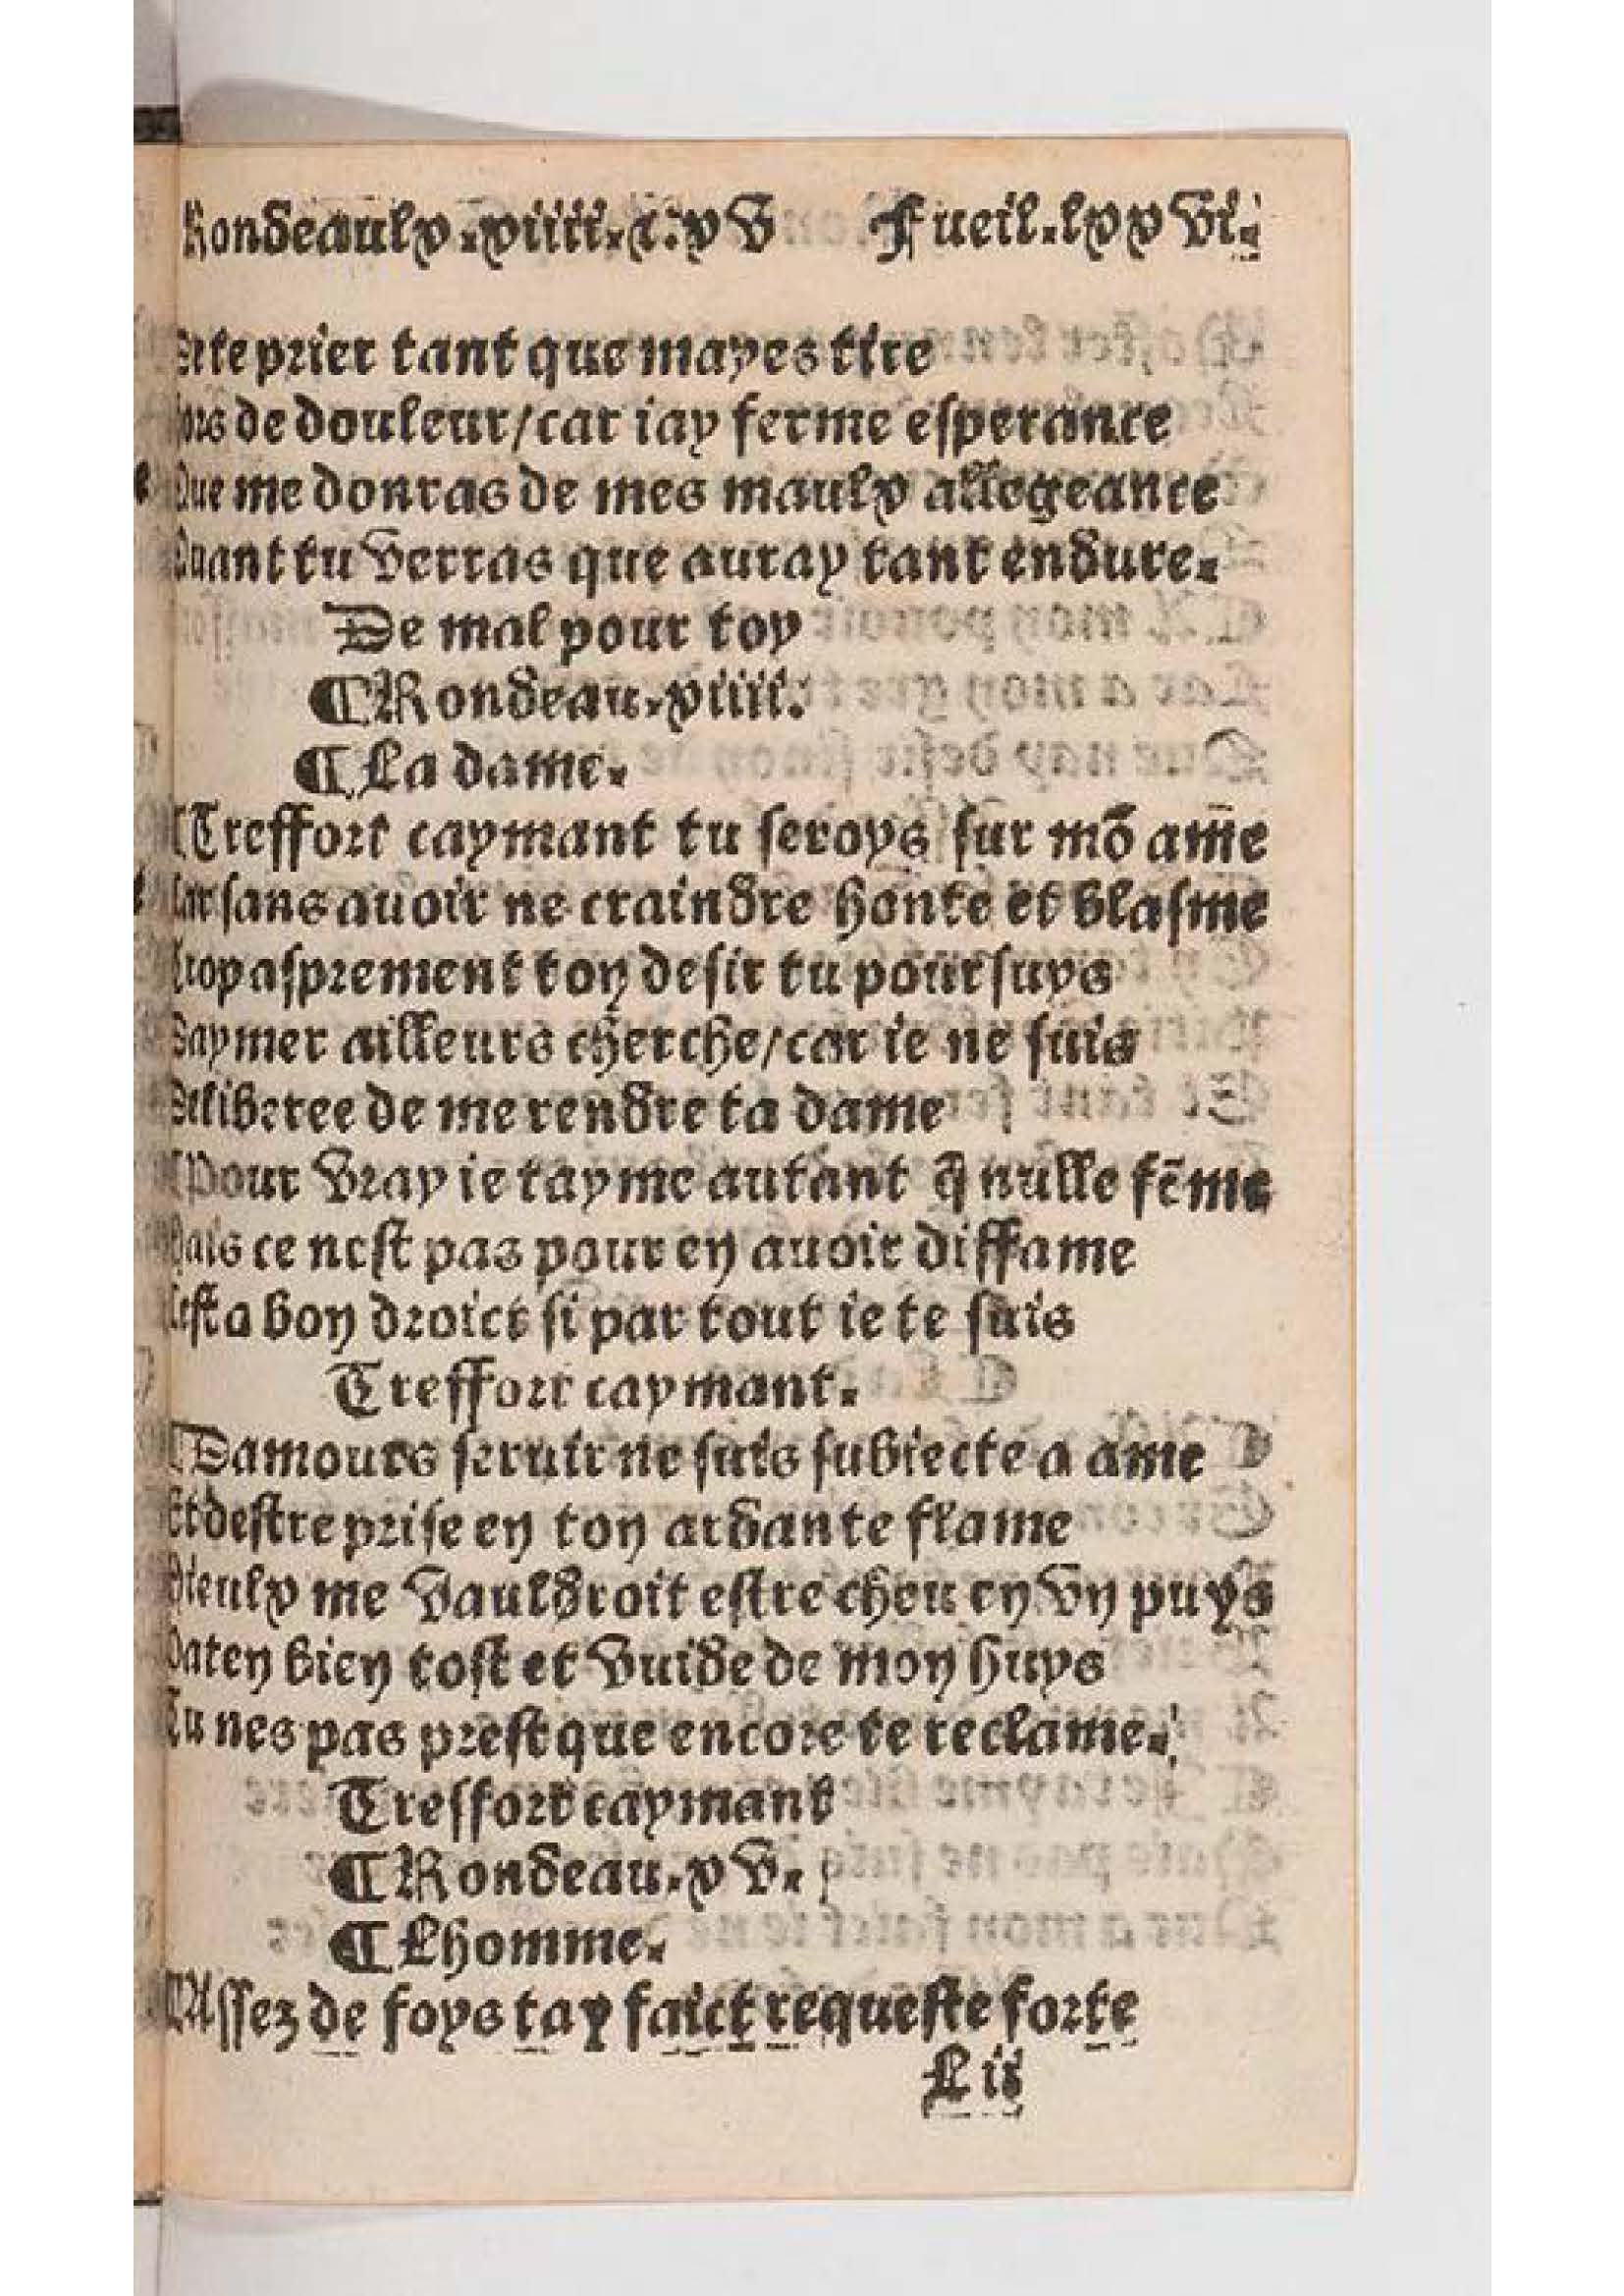 Rondeaulx.xiiii.⁊.xv Fueil.lxxvi.
De te prier tant que mayes tire
Hors de douleur/car iay ferme esperance
Que me donras de mes maulx allegeance
Quant tu verras que auray tant endure.
De mal pour toy
¶Rondeau.xiiii.
¶La dame.
¶Treffort caymant tu seroys sur mō ame
Car sans auoir ne craindre honte et blasme
Trop asprement ton desir tu poursuys
Daymer ailleurs cherche/car ie ne suis
Deliberee de me rendre ta dame
¶Pour vray ie tayme autant q̄ nulle fēme
Mais ce nest pas pour en auoir diffame
Cest a bon droict si par tout ie te suis
Treffort caymant.
¶Damours seruir ne suis subiecte a ame
Et destre prise en ton ardante flame
Mieulx me vauldroit estre cheu en vn puys
Vaten bien tost et vuide de mon huys
Tu nes pas prest que encore te reclame.
Tresfort caymant
¶Rondeau.xv.
¶Lhomme.
¶Assez de foys tay faict requeste forte
L ii